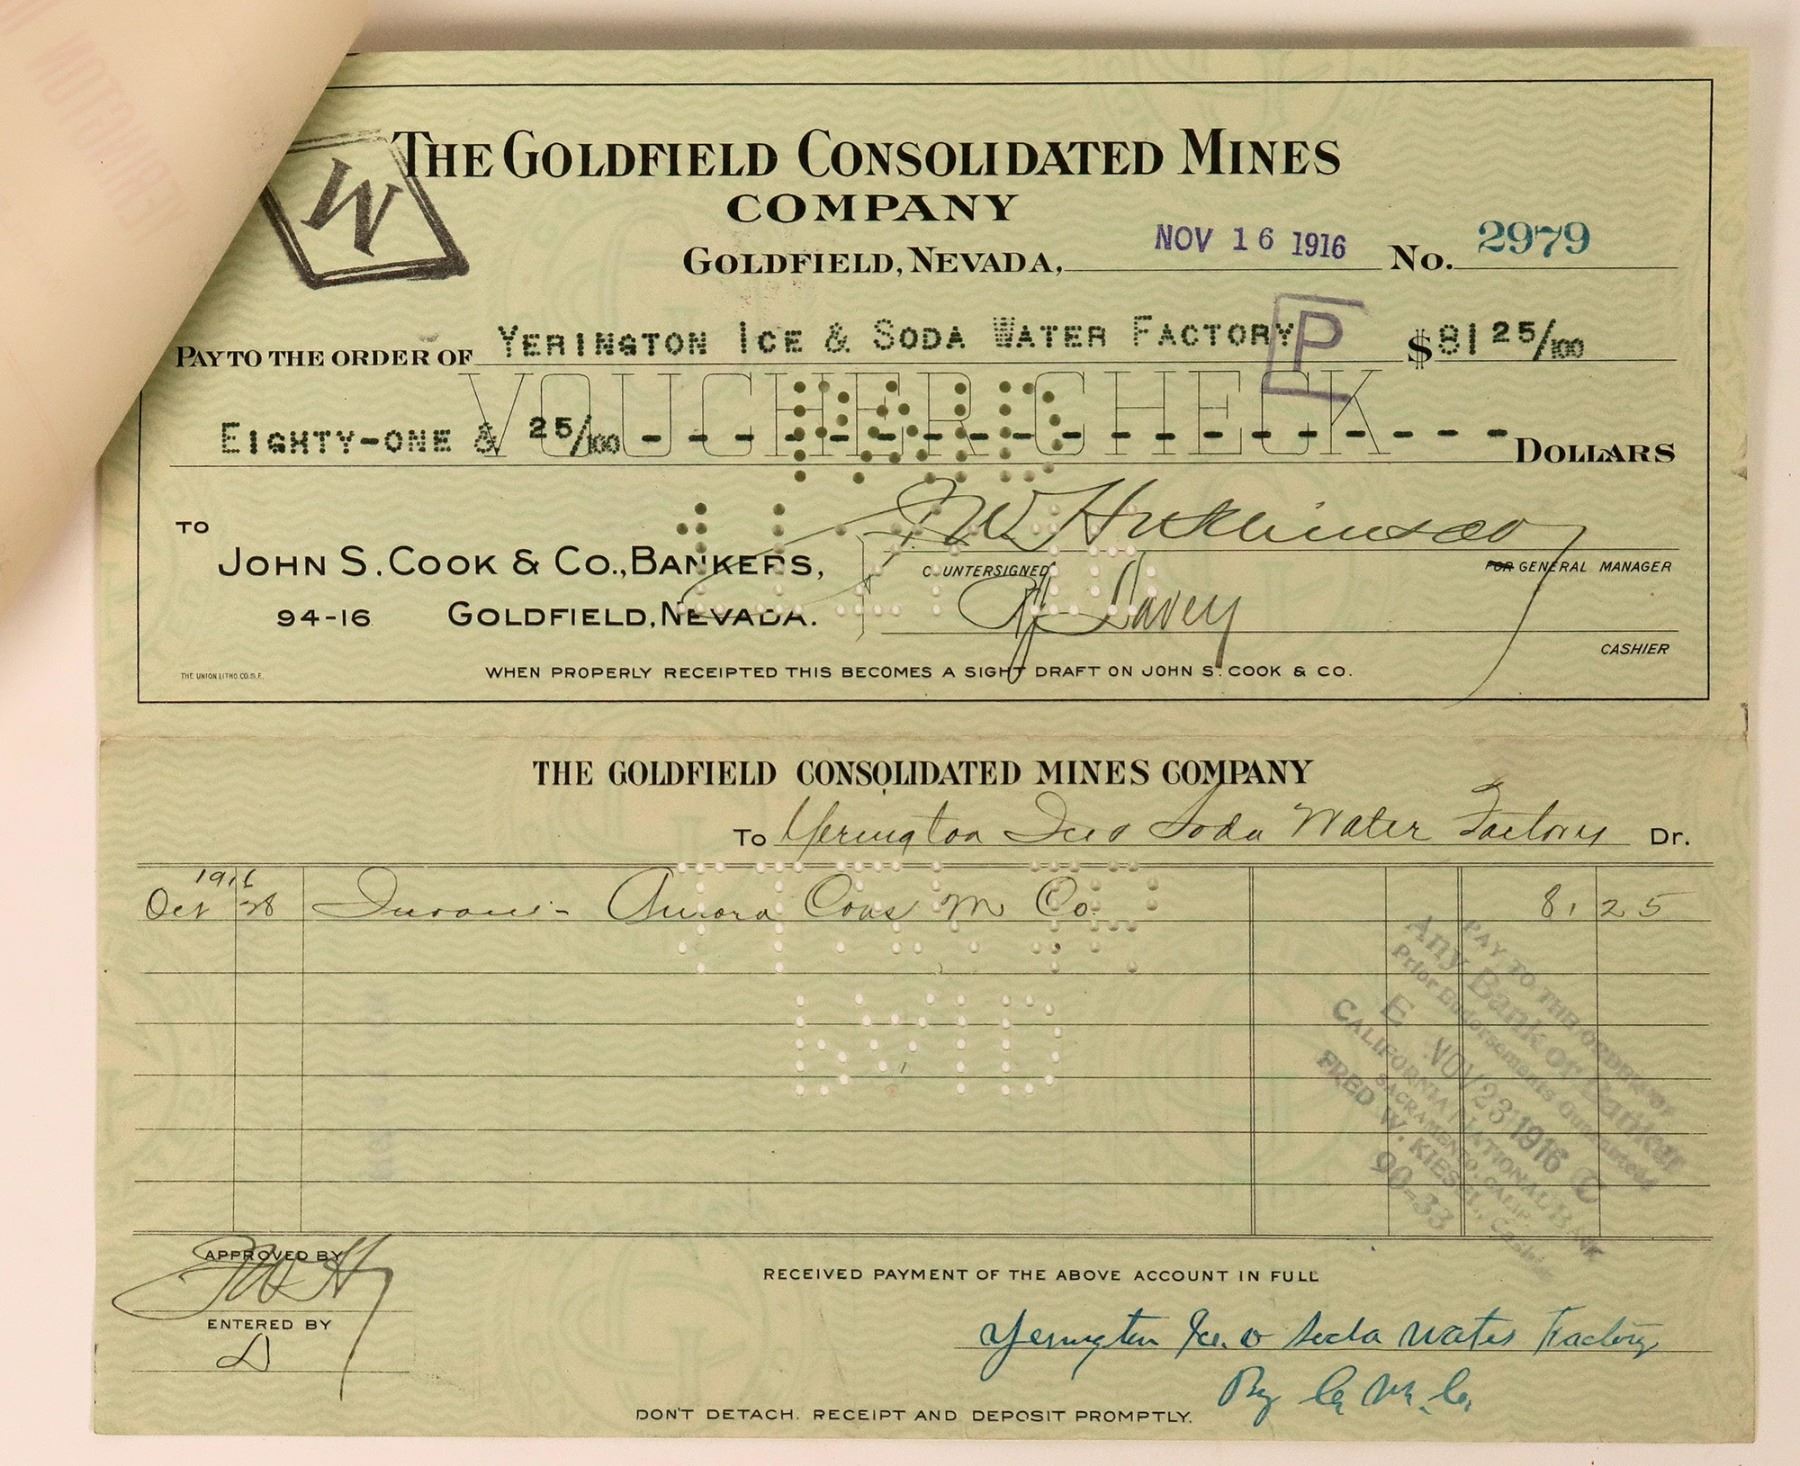 THE GOLDFIELD CONSOLIDATED MINES
COMPANY
M
GOLDFIELD, NEVADA, NOV 16 1916 No. 2979
PAY TO THE ORDER OF YERINGTON ICE & SODA WATER FACTORY $81 25/100
P
VOUCHER CHECK
EIGHTY-ONE & 25/100 - - - - - - - - - - - - - - - - - - DOLLARS
TO
JOHN S. COOK & CO., BANKERS,
94-16 GOLDFIELD, NEVADA.
COUNTERSIGNED
FOR GENERAL MANAGER
Davey
CASHIER
THE UNION LITHO. CO. S.F.
WHEN PROPERLY RECEIPTED THIS BECOMES A SIGHT DRAFT ON JOHN S. COOK & CO.
THE GOLDFIELD CONSOLIDATED MINES COMPANY
To Yerington Ice & Soda Water Factory Dr.
1916
Oct 28 Aurora Cons M Co. 81 25
PAY TO THE ORDER OF
Any Bank or Banker
Prior Endorsements Guaranteed
E NOV 23 1916 C
CALIFORNIA NATIONAL BANK
SACRAMENTO, CALIF.
FRED W. KIESEL, Cashier
90-33
PAID
APPROVED BY
ENTERED BY
D
RECEIVED PAYMENT OF THE ABOVE ACCOUNT IN FULL
Yerington Ice & Soda Water Factory
By
DON'T DETACH. RECEIPT AND DEPOSIT PROMPTLY.